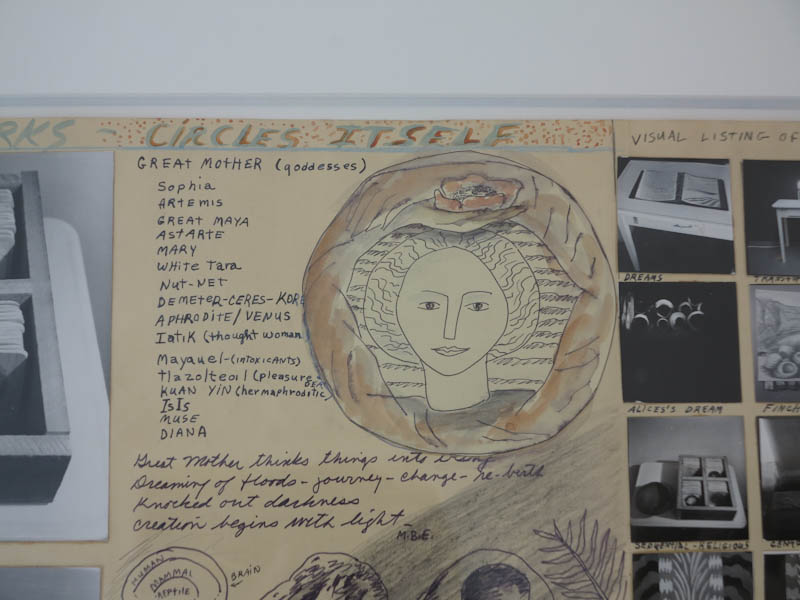 RKS - CIRCLES ITSELF
VISUAL LISTING OF
GREAT MOTHER (goddesses)
Sophia
ARTEMIS
GREAT MAYA
ASTARTE
MARY
White Tara
Nut-NET
DEMETER-CERES-KORE
APHRODITE/VENUS
Iatik (thought woman
Mayauel-(INTOXICANTS)
tlazolteoil (pleasure-
KUAN YIN (hermaphroditic)
ISIS
MUSE
DIANA
Great Mother thinks things into
Dreaming of floods - journey - change - re-birth
Knocked out darkness
creation begins with light -
M.B.E.
HUMAN
MAMMAL
REPTILE
BRAIN
DREAMS
ALICES'S DREAM
SEQUENTIAL-RELIGIOUS